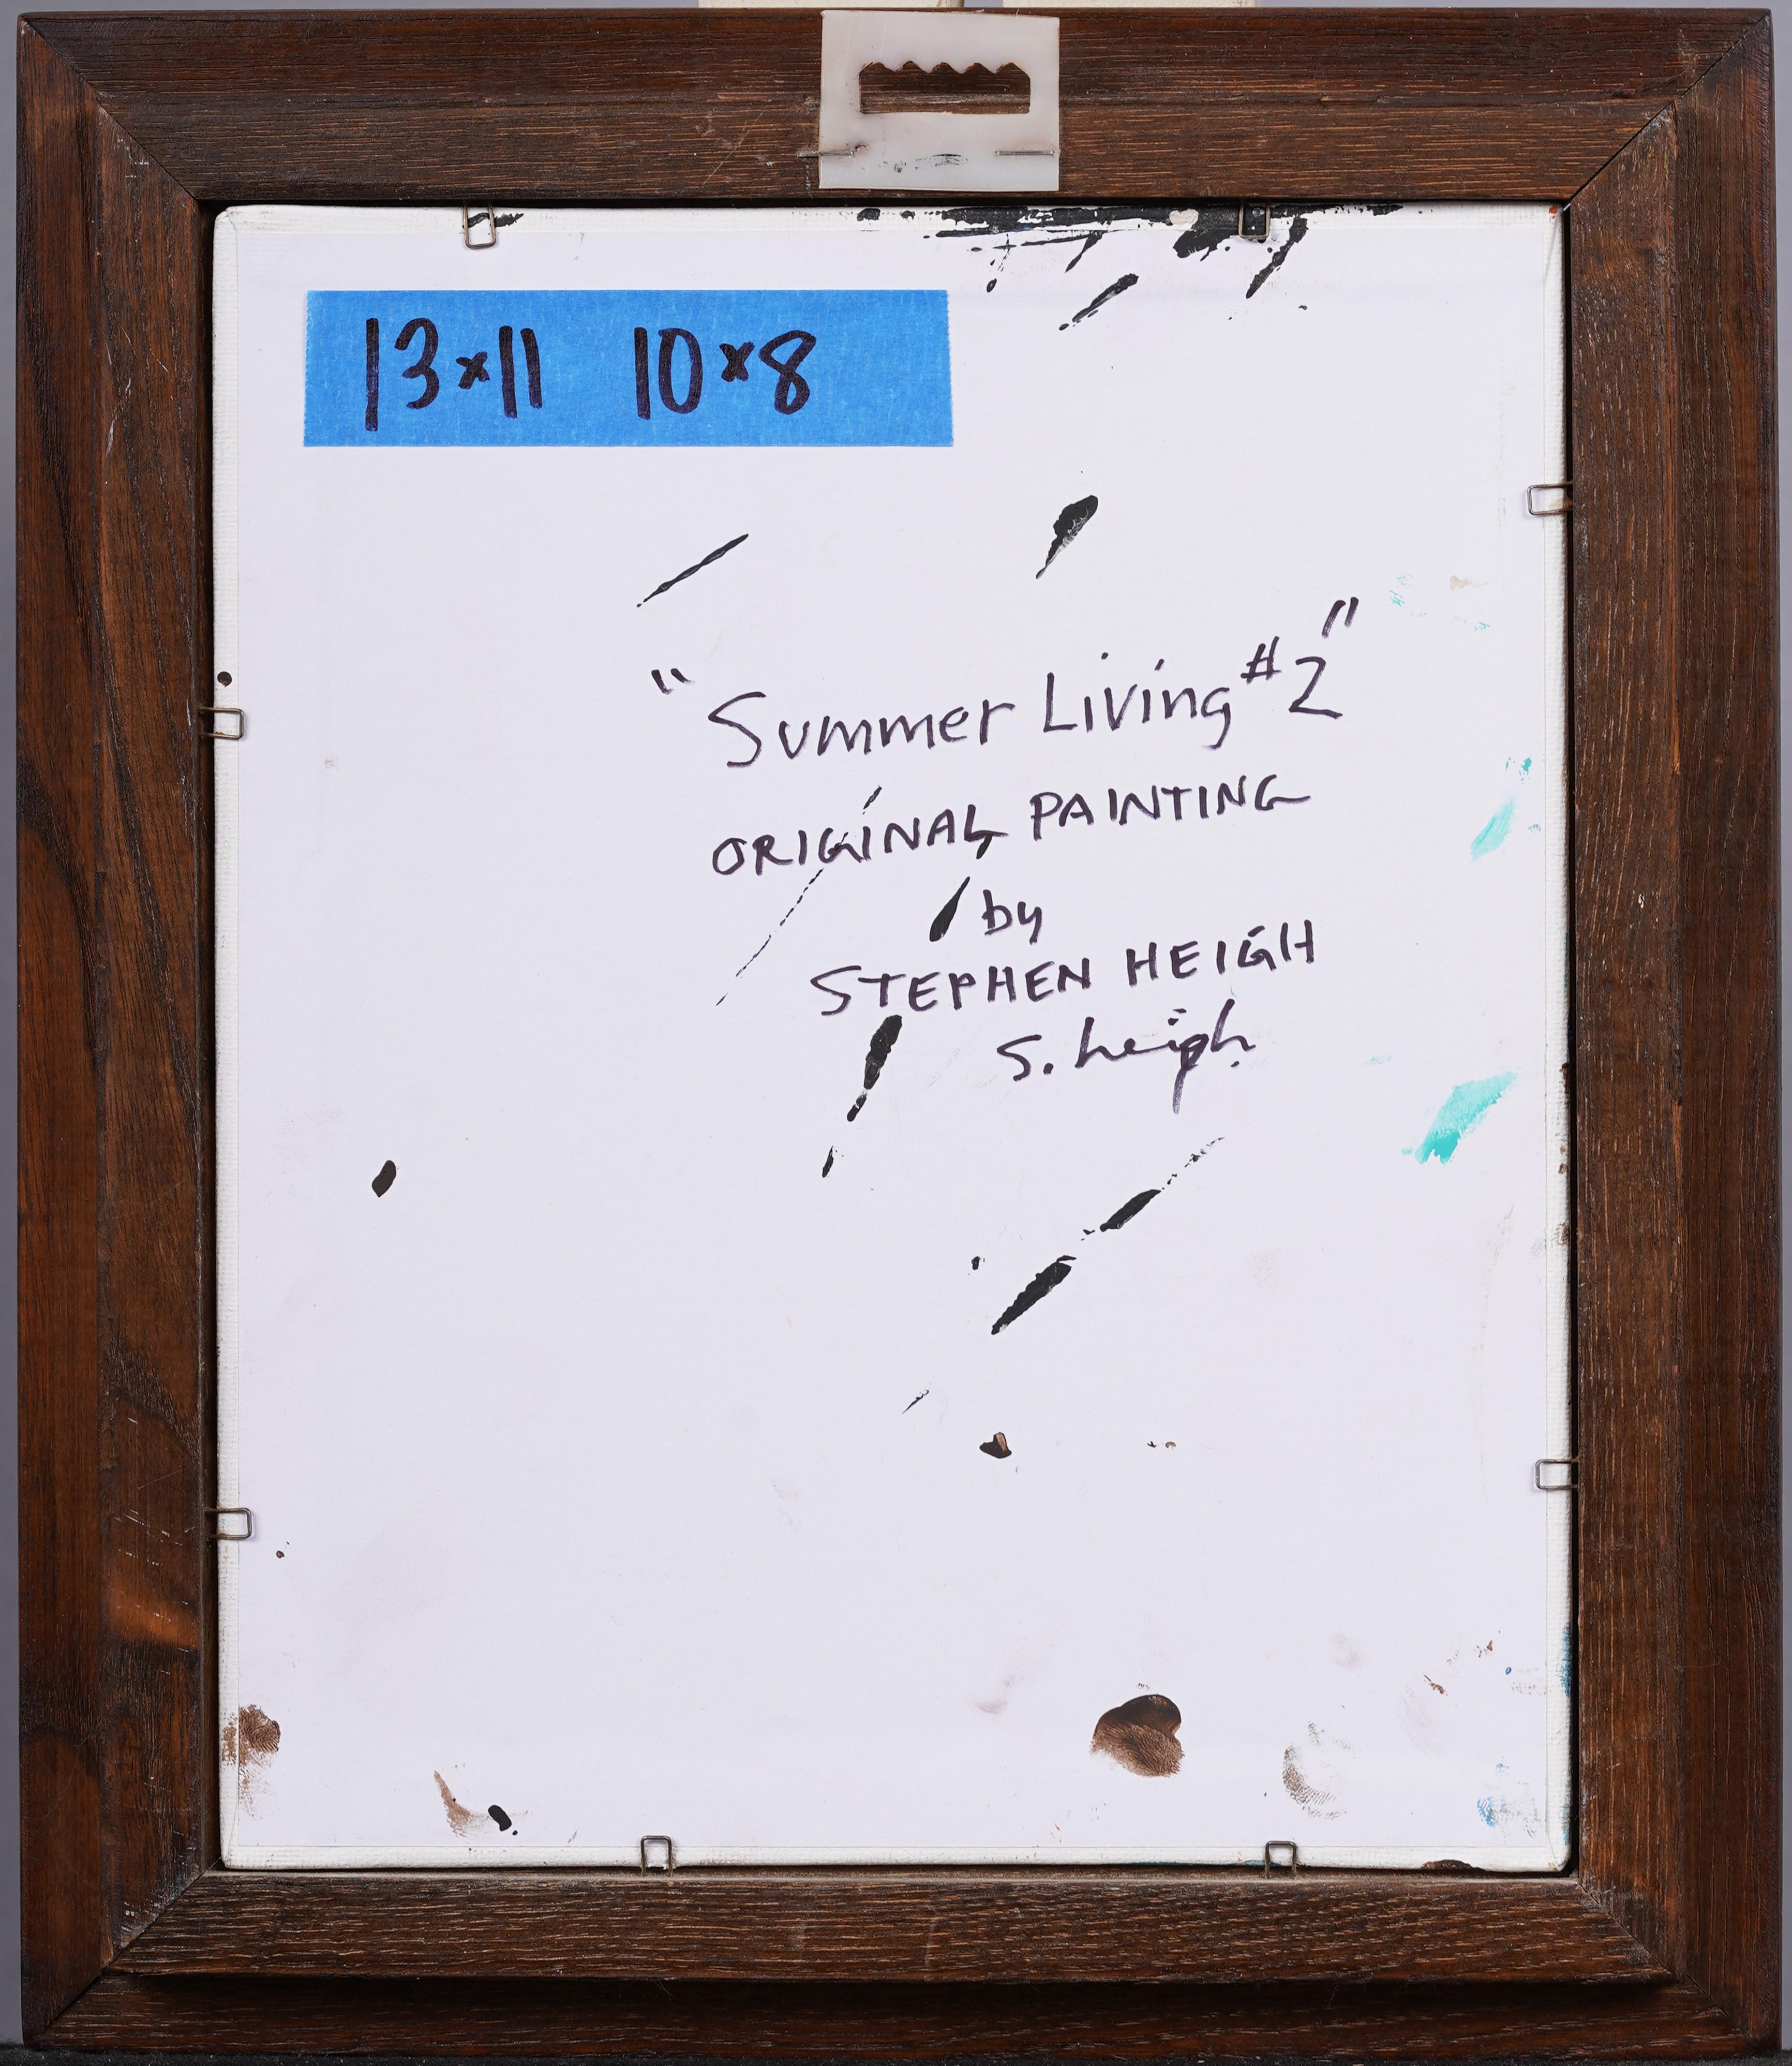 13x11 10x8
"Summer Living #2"
ORIGINAL PAINTING
by
STEPHEN HEIGH
S. heigh